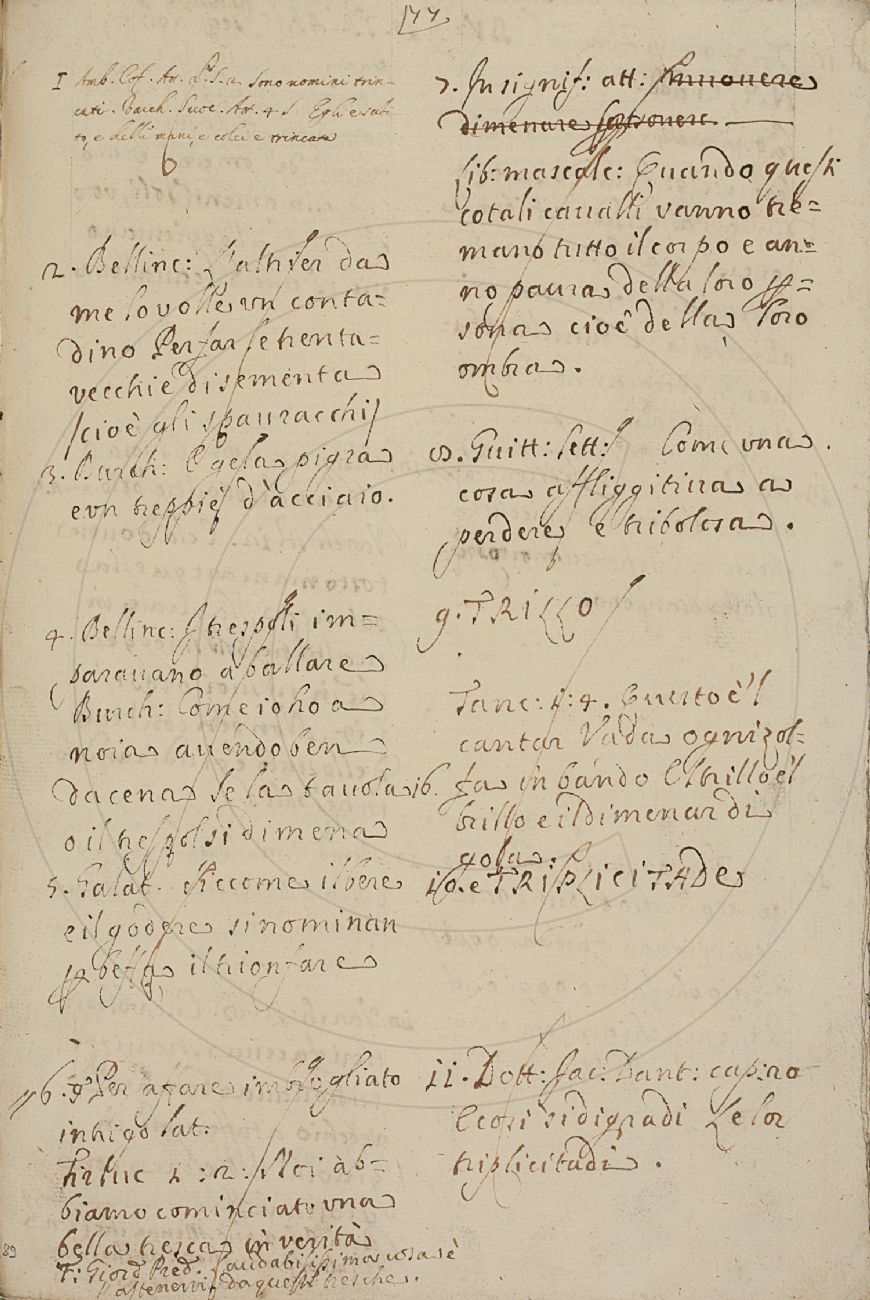 177
1 Amb. Cof. At. P.º S. 2. Sono nomini trin=
cati. Varch. Suoc. At. 4. S. Egli e sati
to, e delli mani, e colei e trincata
2. Bellinc: L'altr'ier da
me lo volle vn conta=
dino Per far le trenta=
vecchie di sementa
/cioè gli spauracchi/
3. Burch: E gela pigra
e vn treppiè d'acciaio.
4. Bellinc: I trespoli im=
parauano a ballare
Burch: Come io ho a
noia auendo ben
da cena Se la tauola
o il trespol si dimena
5. Galat. Siccome il bere
e il godere si nominan
p beffa il trionfare
6. Per affare imbrogliato
intrigo lat:
Fir luc 1: 2: Noi àb=
biamo cominciato vna
bella tresca in verità
F: Giord Pred. Laudabilissima cosa è
l'astenervi da queste tresche.
7. In signif: att: Smuouere
dimenare scuotere
lib: mascalc: Quando questi
cotali caualli vanno tre=
mano tutto il corpo e an=
no paura della loro p=
sona cioè della loro
ombra.
8. Guitt: lett: Come vna
cosa affliggitiua a
perdere e tribolosa.
9. TRILLO
Tanc: 1: 4. Questo è 'l
cantar Vada ogni zol=
16. fa in bando E 'l trillo e 'l
brillo e il dimenar di
gola.
10. e TRIPLICITADE
11. Dott: Jac: Dant: cap: no
E così si digradi Le lor
triplicitadi.
89